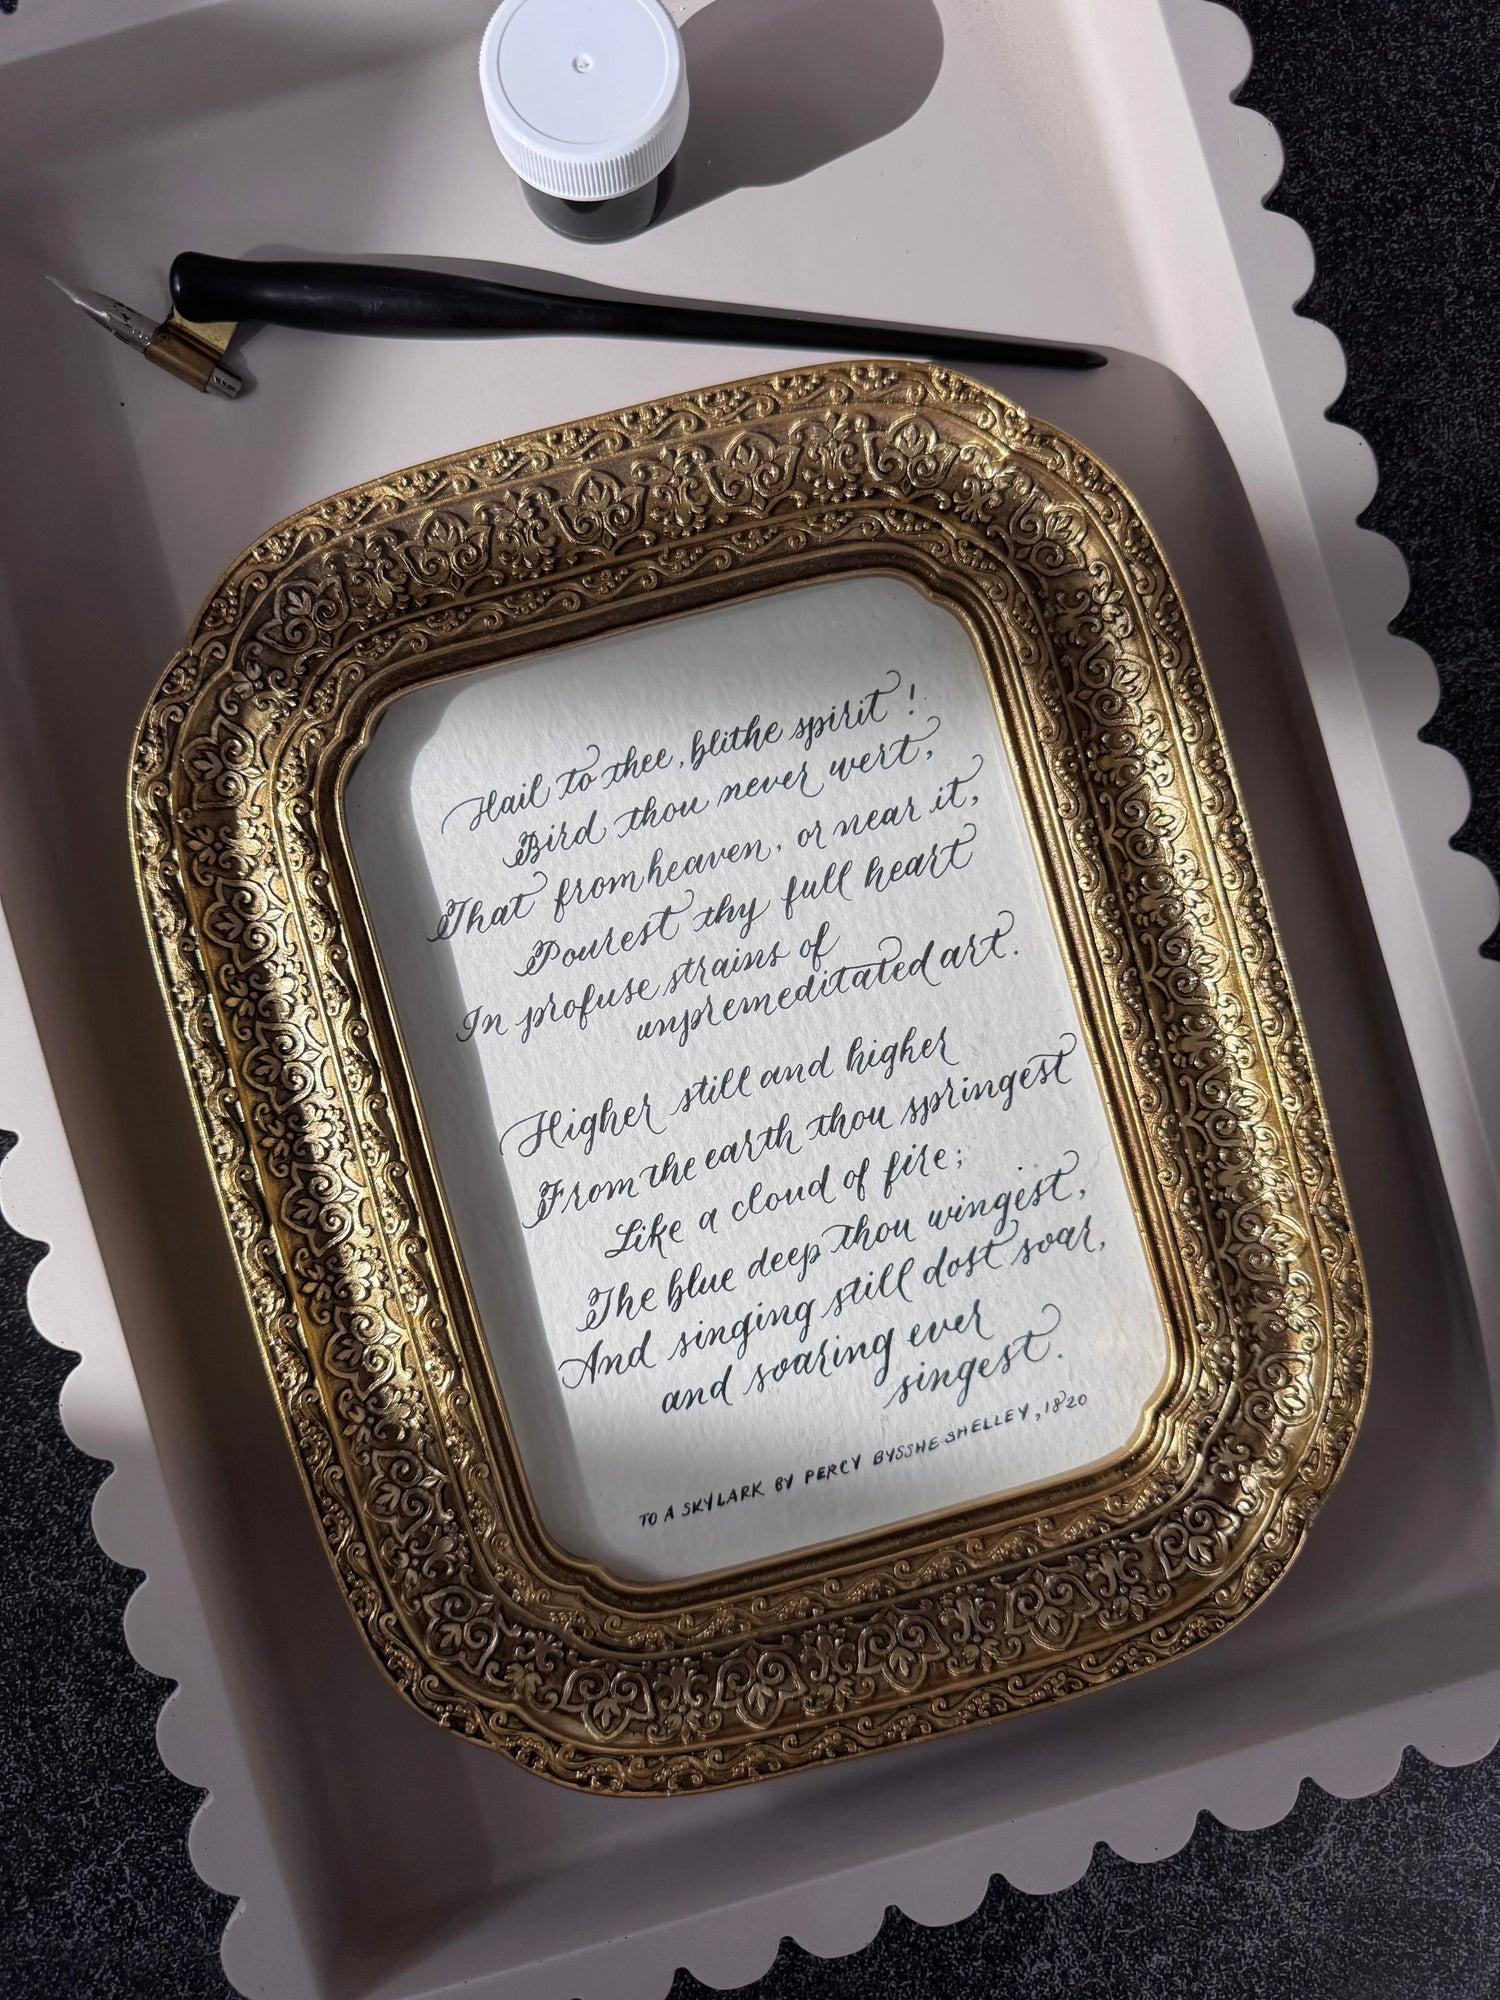 Hail to thee, blithe spirit!
Bird thou never wert,
That from heaven, or near it,
Pourest thy full heart
In profuse strains of
unpremeditated art.
Higher still and higher
From the earth thou springest
Like a cloud of fire;
The blue deep thou wingest,
And singing still dost soar,
and soaring ever
singest.
TO A SKYLARK BY PERCY BYSSHE SHELLEY, 1820